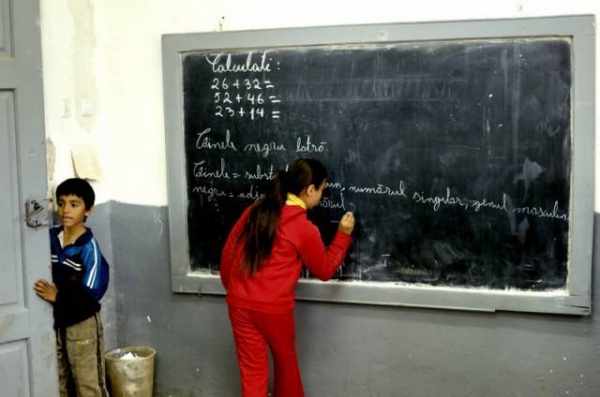 Calculati:
26+32=
52+46=
23+14=
Cîinele negru latră.
Cîinele = subst un, numărul singular, genul masculin
negru = adj